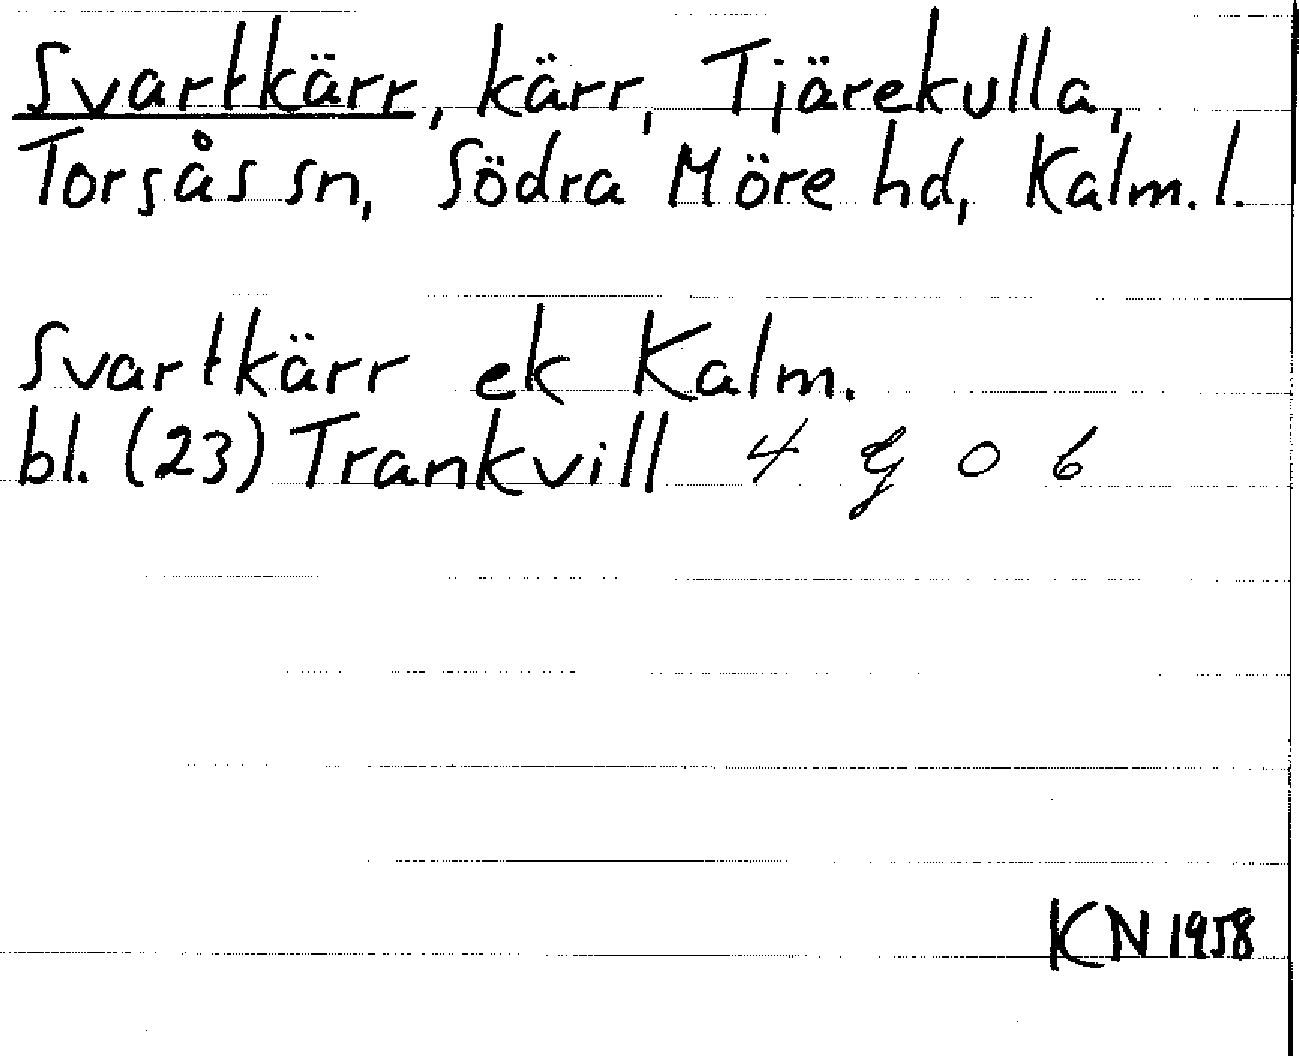 Svartkärr, kärr, Tjärekulla,
Torsås sn, Södra Möre hd, Kalm. l.
Svartkärr ek Kalm.
bl. (23) Trankvill 4 G 0 6
KN 1958